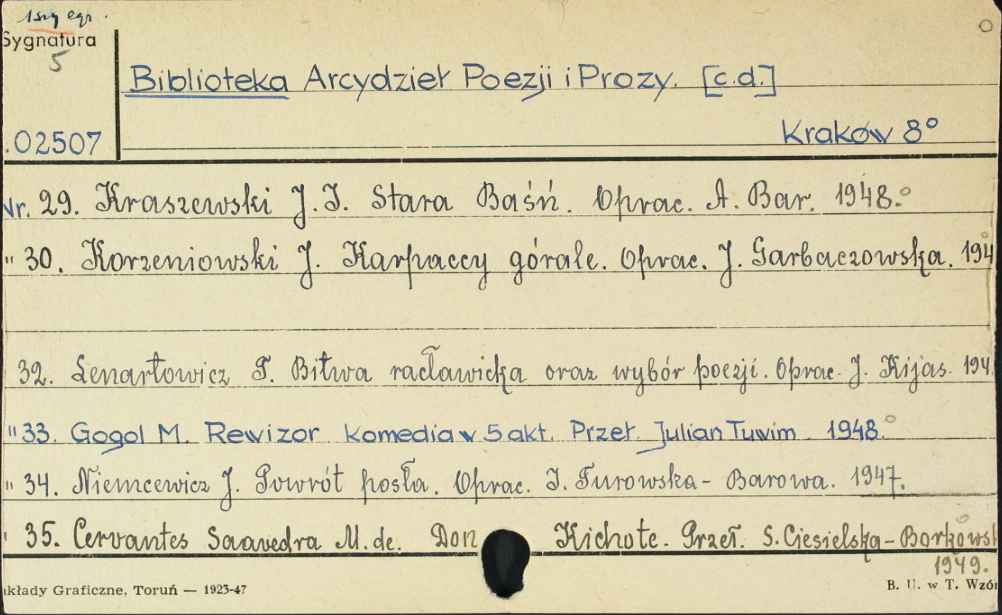 1szy egz.
Sygnatura
5
Biblioteka Arcydzieł Poezji i Prozy. [c.d.]
.02507
Kraków 8°
Nr. 29. Kraszewski J. I. Stara Baśń. Oprac. A. Bar. 1948.°
" 30. Korzeniowski J. Karpaccy górale. Oprac. J. Garbaczowska. 194
32. Lenartowicz T. Bitwa racławicka oraz wybór poezji. Oprac. J. Kijas. 194
" 33. Gogol M. Rewizor komedia w 5 akt. Przeł. Julian Tuwim 1948.°
" 34. Niemcewicz J. Powrót posła. Oprac. I. Turowska-Barowa. 1947.
" 35. Cervantes Saavedra M. de. Don Kichote. Przeł. S. Ciesielska-Borkowsk
1949.
akłady Graficzne, Toruń — 1923-47
B. U. w T. Wzór